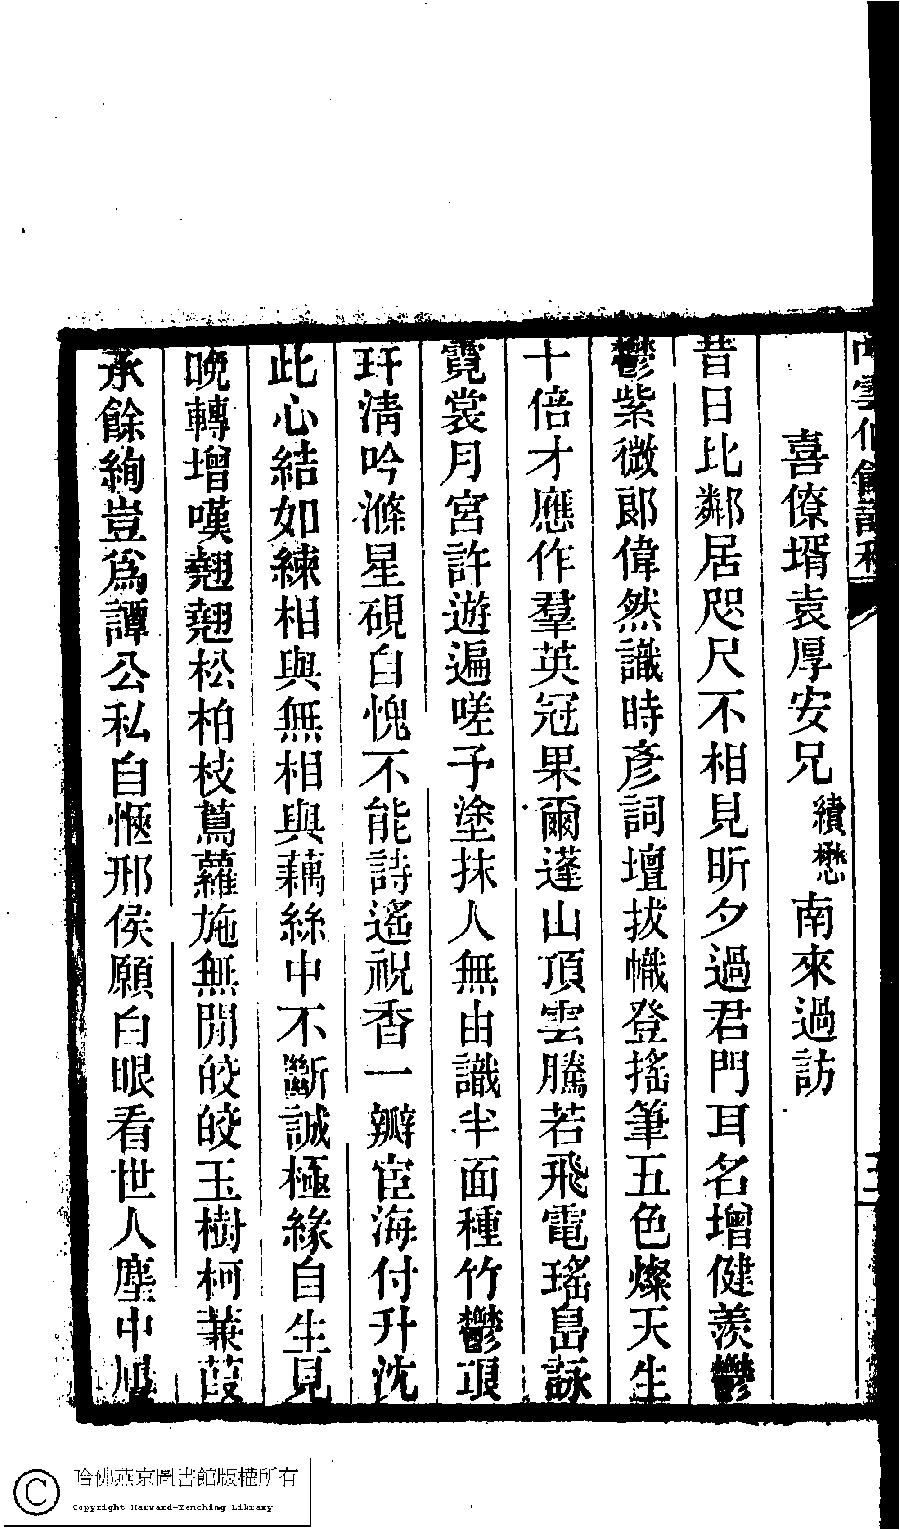 喜僚壻袁厚安兄績懋南來過訪
昔日比鄰居咫尺不相見昕夕過君門耳名增健羨鬱
鬱紫微郞偉然識時彥詞壇拔幟登搖筆五色燦天生
十倍才應作羣英冠果爾蓬山頂雲騰若飛電瑤島詠
霓裳月宮許遊遍嗟予塗抹人無由識半面種竹鬱琅
玕淸吟滌星硯自愧不能詩遙祝香一瓣宦海付升沈
此心結如練相與無相與藕絲中不斷誠極緣自生見
晚轉增嘆翹翹松柏枝蔦蘿施無閒皎皎玉樹柯蒹葭
承餘絢豈爲譚公私自愜邢侯願白眼看世人塵中
哈佛燕京圖書館版權所有
Copyright Harvard-Yenching Library